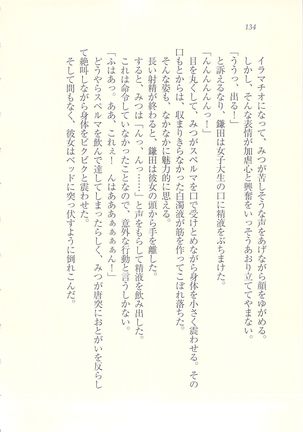 134
イラマチオになって、みつが苦しそうな声をあげながら顔をゆがめる。
しかし、そんな表情が加虐心と興奮をいっそうあおり立ててやまない。
「ううっ、出る！」
と訴えるなり、鎌田は女子大生の口に精液をぶちまけた。
「んんんんんっ！」
目を丸くして、みつがスペルマを口で受けとめながら身体を小さく震わせる。その
口もとからは、収まりきらなかった白濁液が筋を作ってこぼれ落ちた。
そんな姿も、なかなかに魅力的に思える。
長い射精が終わると、鎌田は彼女の頭から手を離した。
すると、みつは「んっ、んっ……」と声をもらして精液を飲み出した。
これは命令していなかったことなので、意外な行動と言うしかない。
「ふはあっ。ああ、これぇ！　んはあああぁぁぁぁん！」
どうやらスペルマを飲んで達してしまったらしく、みつが唐突におとがいを反らし
て絶叫しながら身体をビクビクと震わせた。
そして間もなく、彼女はベッドに突っ伏すように倒れこんだ。